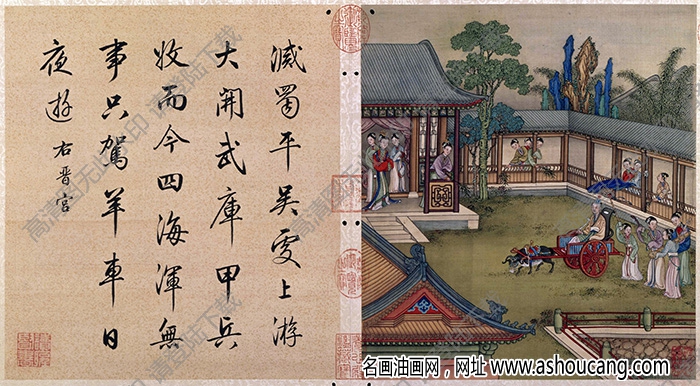 滅蜀平吳更上游
大開武庫甲兵
收而今四海渾無
事只駕羊車日
夜遊 右晉宮
高清图无此水印 请登陆下载
名画油画网，网址 www.ashoucang.com